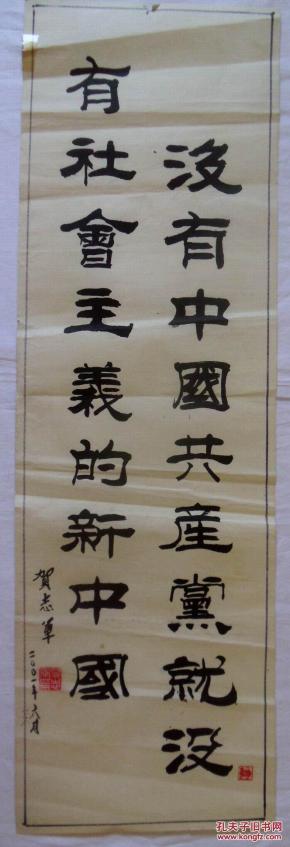 没有中國共産黨就没
有社會主義的新中國
賀志軍
二〇〇一年六月
孔夫子旧书网
www.kongfz.com